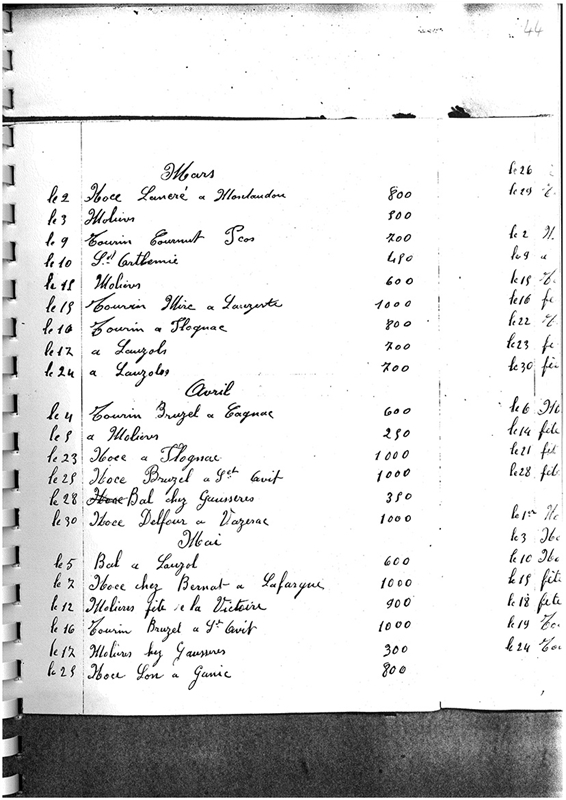 44
Mars
le 2 Noce Lameré a Montaudou 800
le 3 Moliers 300
le 9 Tourin Tournut Pcos 700
le 10 St Arthemie 450
le 15 Moliers 600
le 15 Tourin Mire a Lauzerte 1000
le 16 Tourin a Flognac 800
le 17 a Lauzols 700
le 24 a Lauzoles 700
Avril
le 4 Tourin Bruzel a Cagnac 600
le 5 a Moliers 250
le 23 Noce a Flognac 1000
le 25 Noce Bruzel a St Avit 1000
le 28 Noce Bal chez Gausseres 350
le 30 Noce Delfour a Vazerac 1000
Mai
le 5 Bal a Lauzol 600
le 7 Noce chez Bernat a Lafargue 1000
le 12 Molieres fête e la Victoire 900
le 16 Tourin Bruzel a St Avit 1000
le 17 Molieres hez Gausseres 300
le 25 Noce Lon a Ganic 800
le 26
le 29
le 2 N.
le 9 a
le 15
le 16 fe
le 22
le 23 fe
le 30 fê
le 6 No
le 14 fête
le 21 fet
le 28 fet
le 1er No
le 3 No
le 10 No
le 15 fête
le 18 fete
le 19 To
le 24 Tou